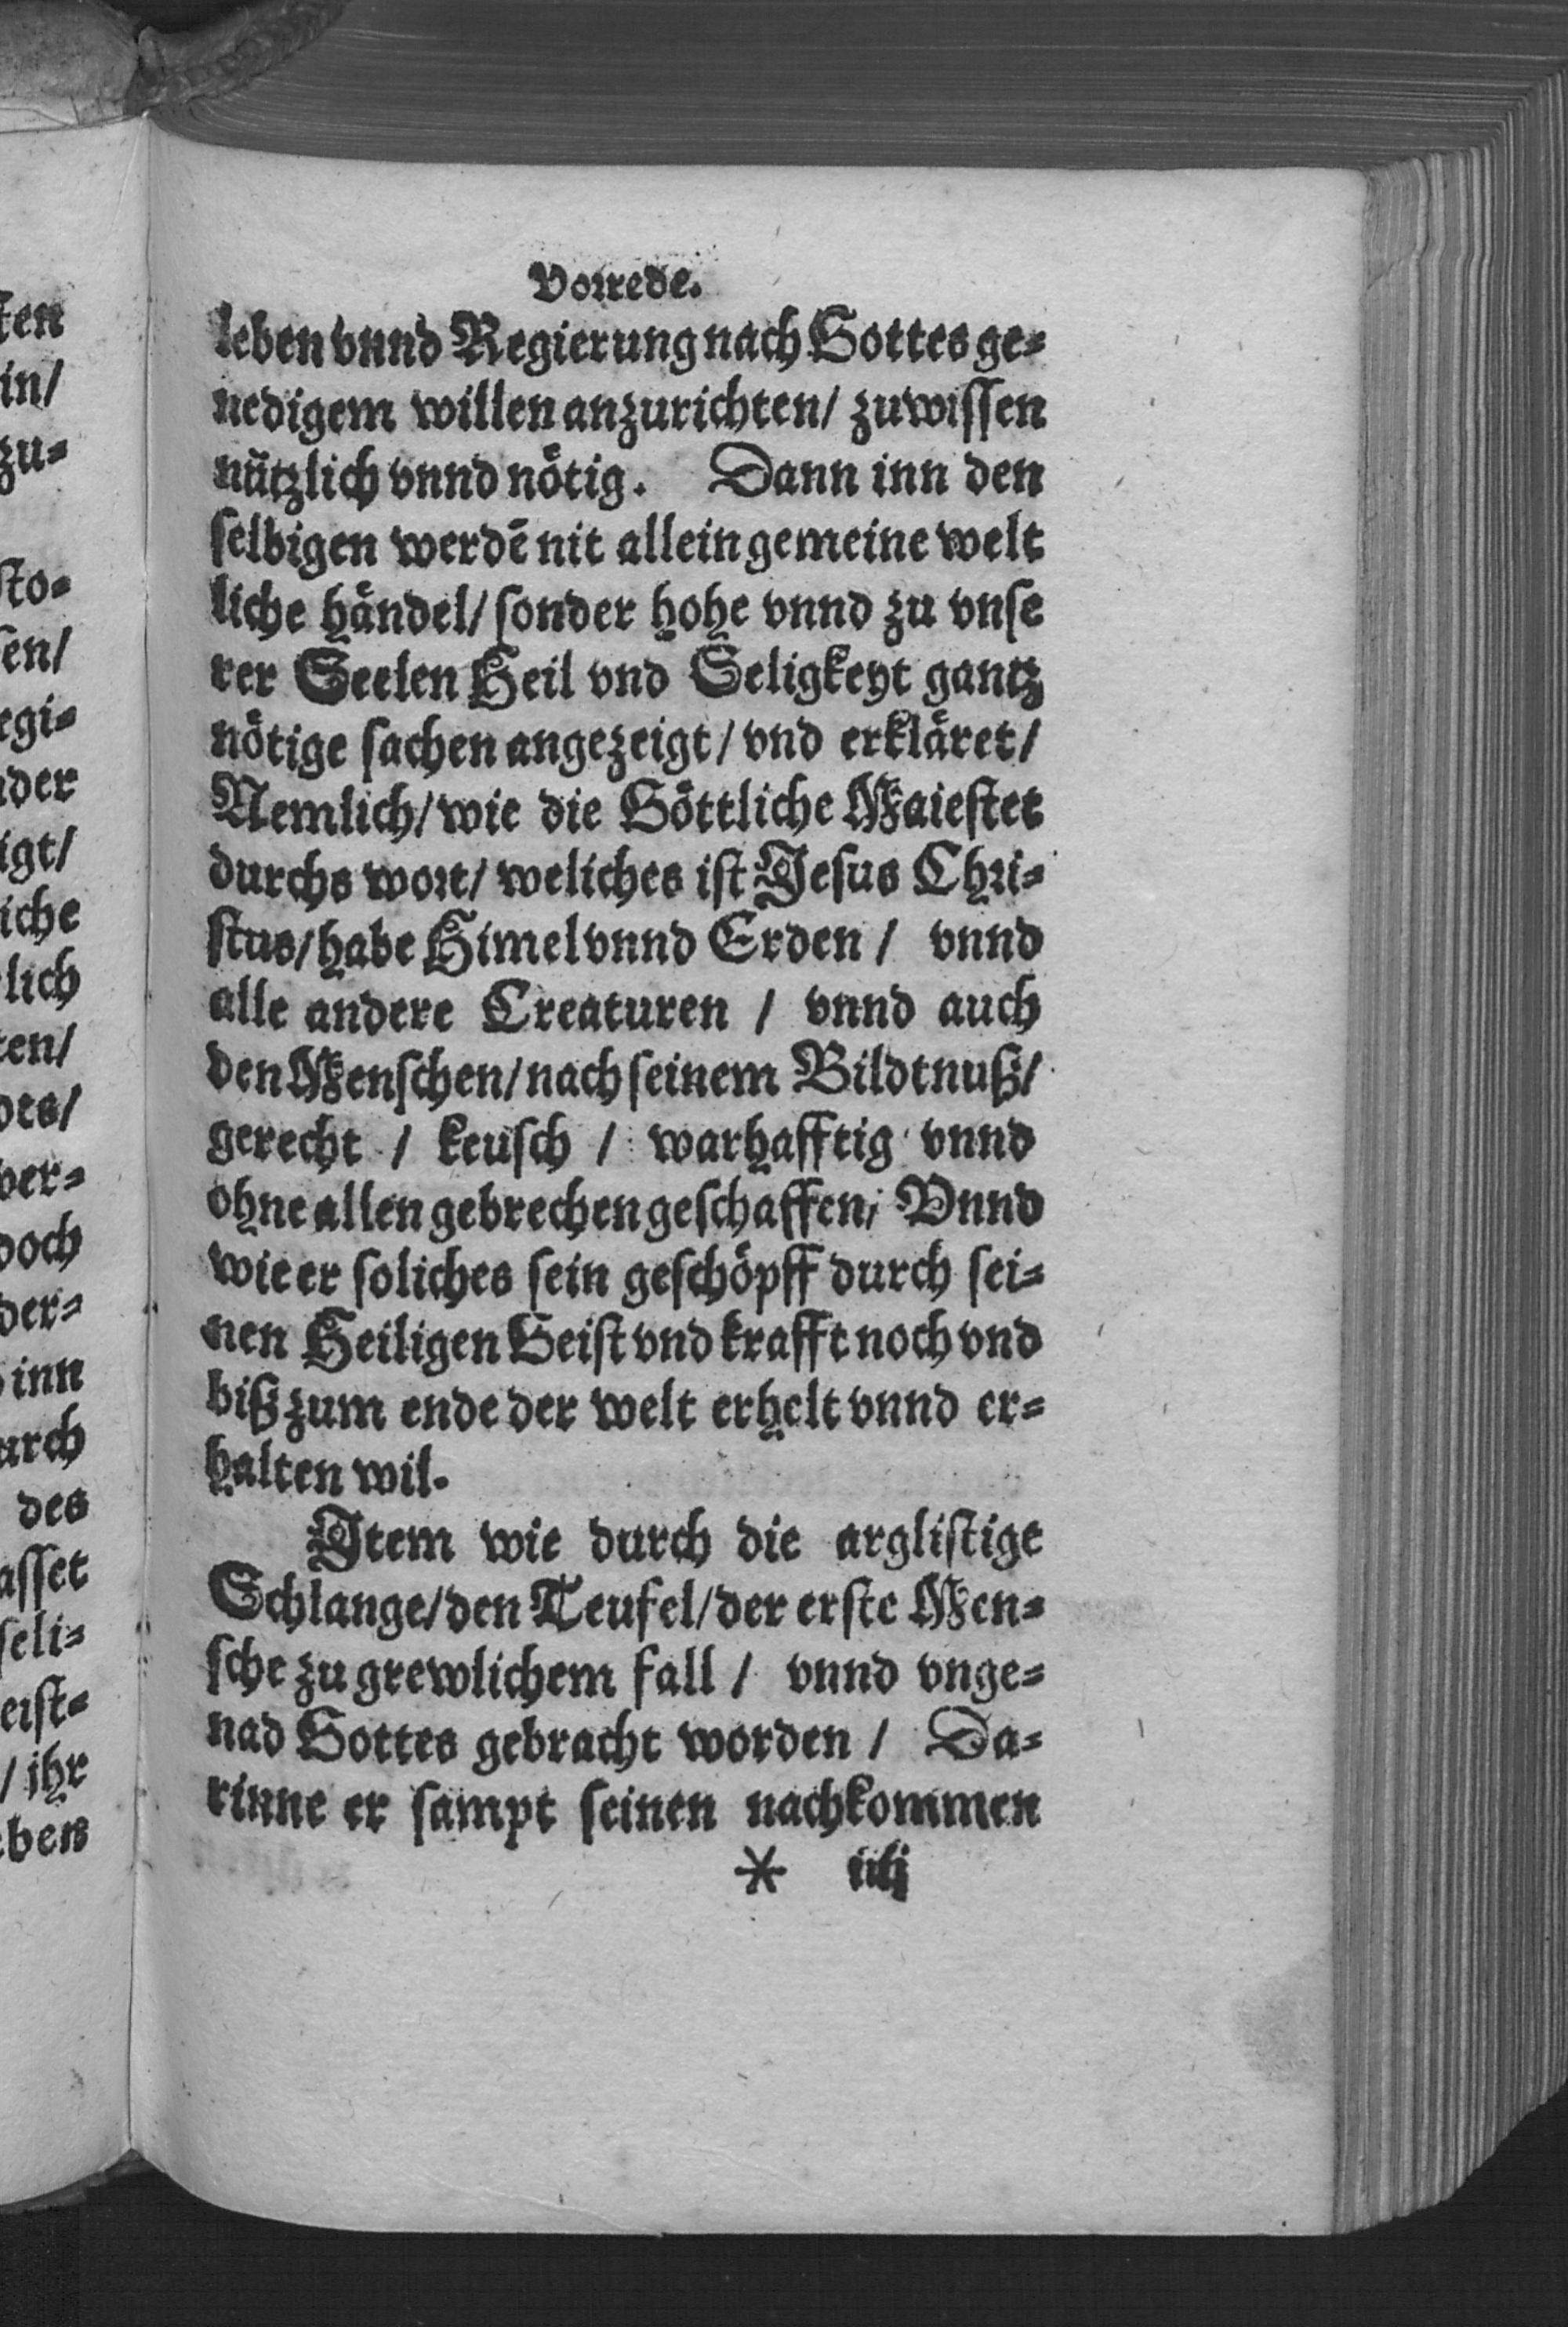 Vorrede.
leben vnnd Regierung nach Gottes ge-
nedigem willen anzurichten/ zuwissen
nützlich vnnd nötig. Dann inn den
selbigen werdē nit allein gemeine welt
liche händel/ sonder hohe vnnd zu vnse
rer Seelen Heil vnd Seligkeyt gantz
nötige sachen angezeigt/ vnd erkläret/
Nemlich/ wie die Göttliche Maiestet
durchs wort/ weliches ist Jesus Chri-
stus/ habe Himel vnnd Erden / vnnd
alle andere Creaturen / vnnd auch
den Menschen/ nach seinem Bildtnuß/
gerecht / keusch / warhafftig vnnd
ohne allen gebrechen geschaffen/ Vnnd
wie er soliches sein geschöpff durch sei-
nen Heiligen Geist vnd krafft noch vnd
biß zum ende der welt erhelt vnnd er-
halten wil.
Item wie durch die arglistige
Schlange/ den Teufel/ der erste Men-
sche zu grewlichem fall / vnnd vnge-
nad Gottes gebracht worden / Da-
rinne er sampt seinen nachkommen
* iiij